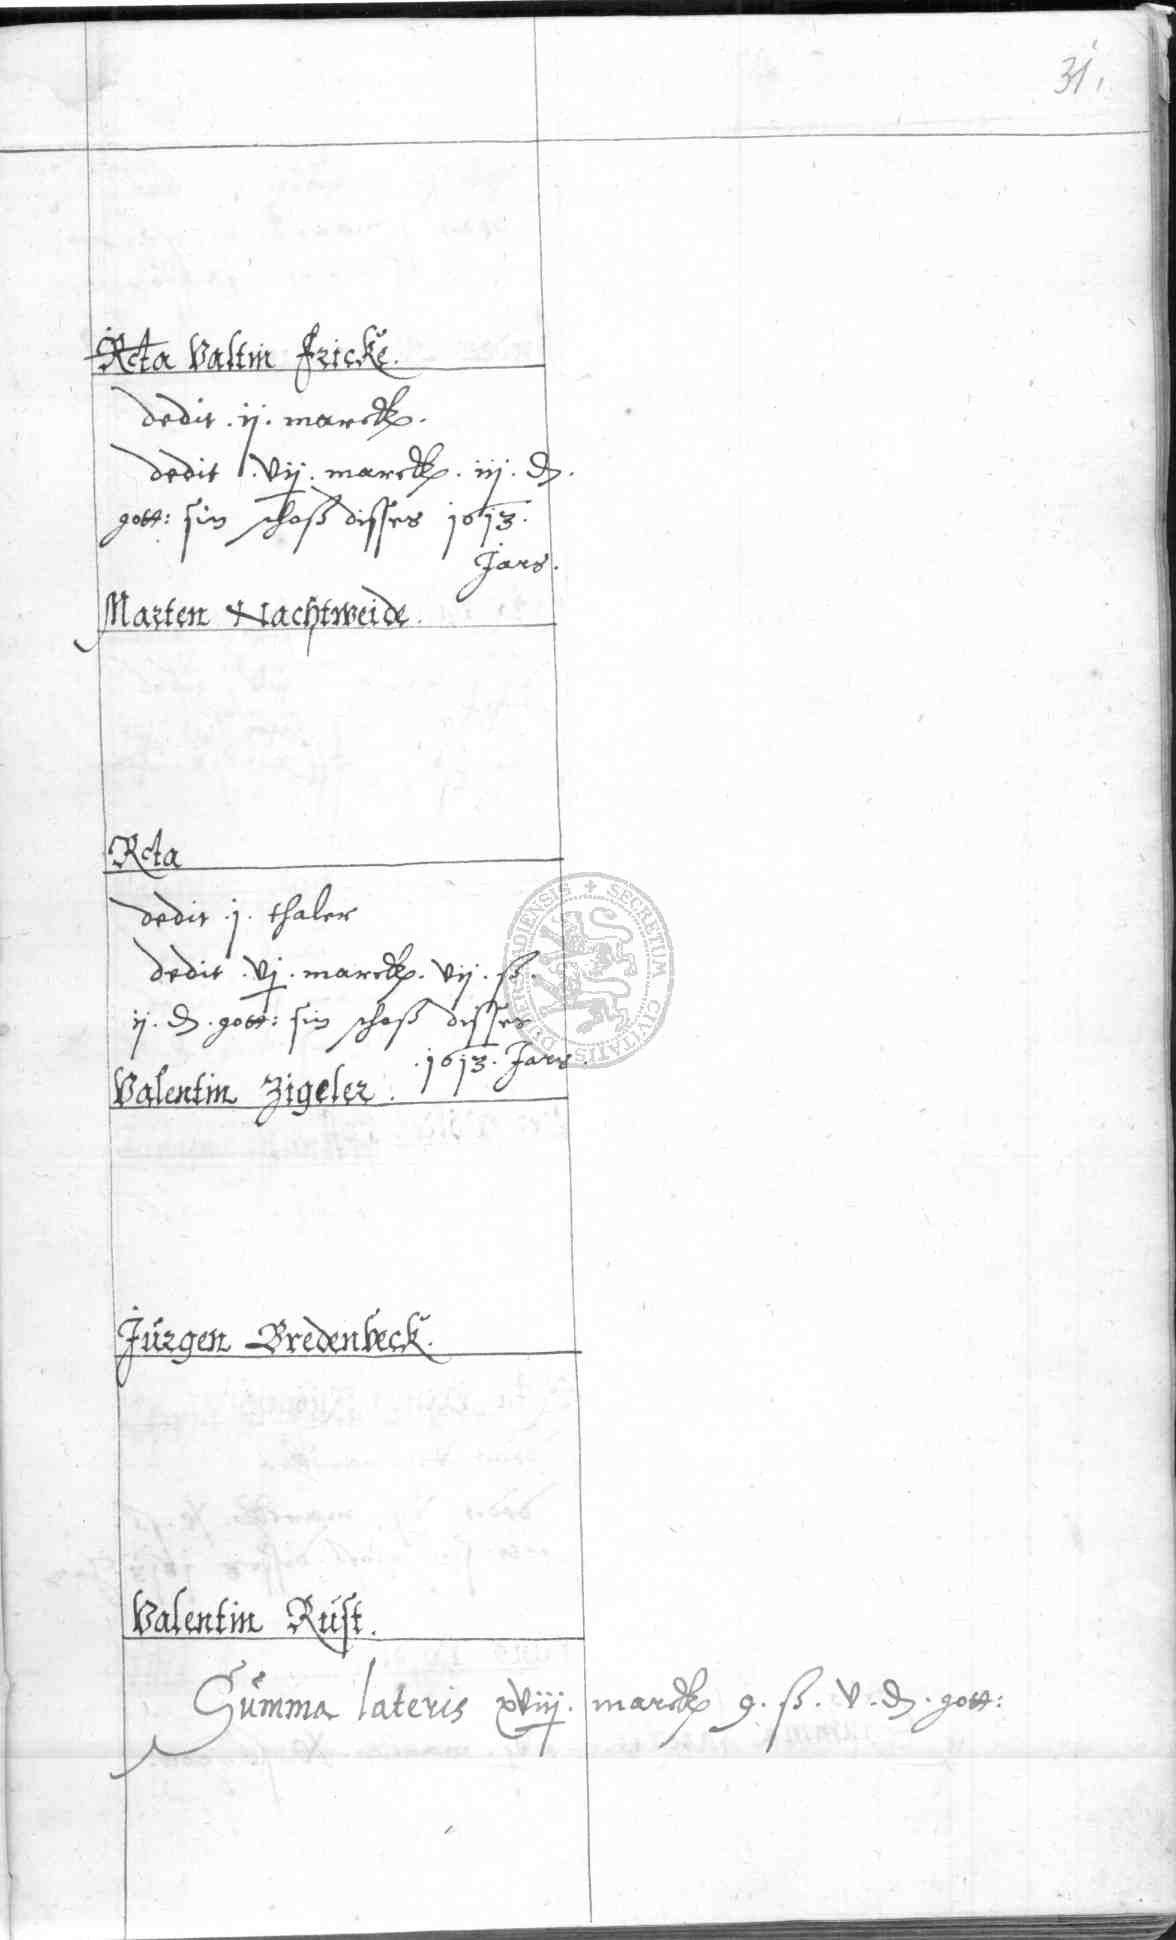 31.
Rcta Valtin Fricke.
dedit . ij . marck .
dedit . Vij . marck . iij . d .
gott : sin schoß disses 1613 .
Jars .
Marten Nachtweide .
Rcta
dedit . j . thaler
dedit . Vj . marck . Vij . ß .
ij . d . gott : sin schoß disses
. 1613 . Jars .
Valentin Zigeler .
Jürgen Bredenbeck .
Valentin Rust .
Summa lateris xViij . marck 9 . ß . V . d . gott :
SECRETUM CIVITATIS